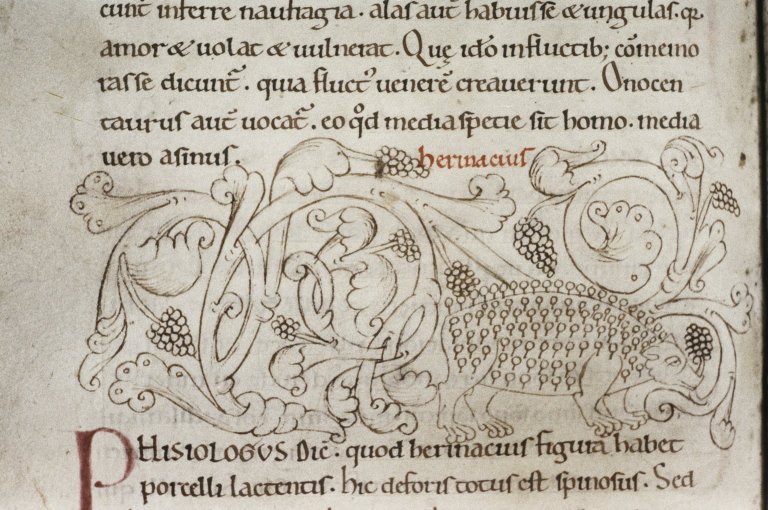 cunt̄ inferre naufragia. alas aut̄ habuisse & ungulas. qꝛ
amor & uolat & uulnerat. Quę idō influctib; cōmemo
rasse dicunt̄. quia fluctꝰ uenerē creauerunt. Onocen
taurus aut̄ uocat̄. eo qd̄ media specie sit homo. media
uero asinus.
herinacius
PHISIOLOGUS Dic̄. quod herinacius figurā habet
porcelli lactentis. hic deforis totus est spinosus. Sed